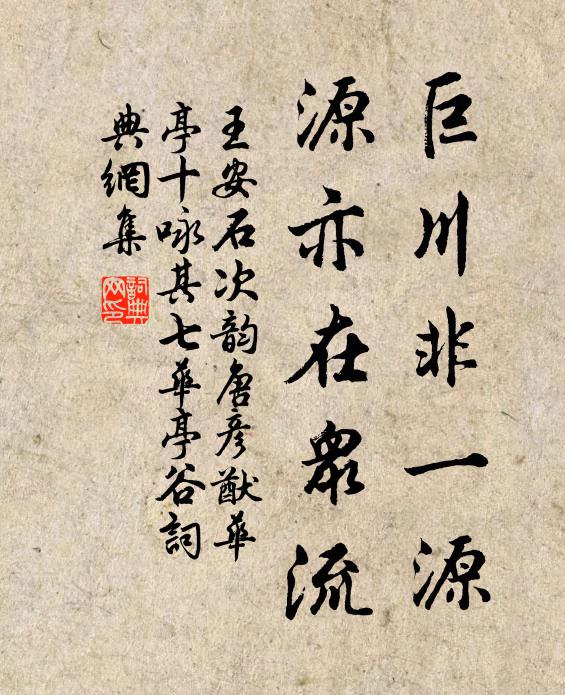 巨川非一源
源亦在衆流
王安石次韵唐彦猷華
亭十咏其七華亭谷詞
典網集
詞典网印